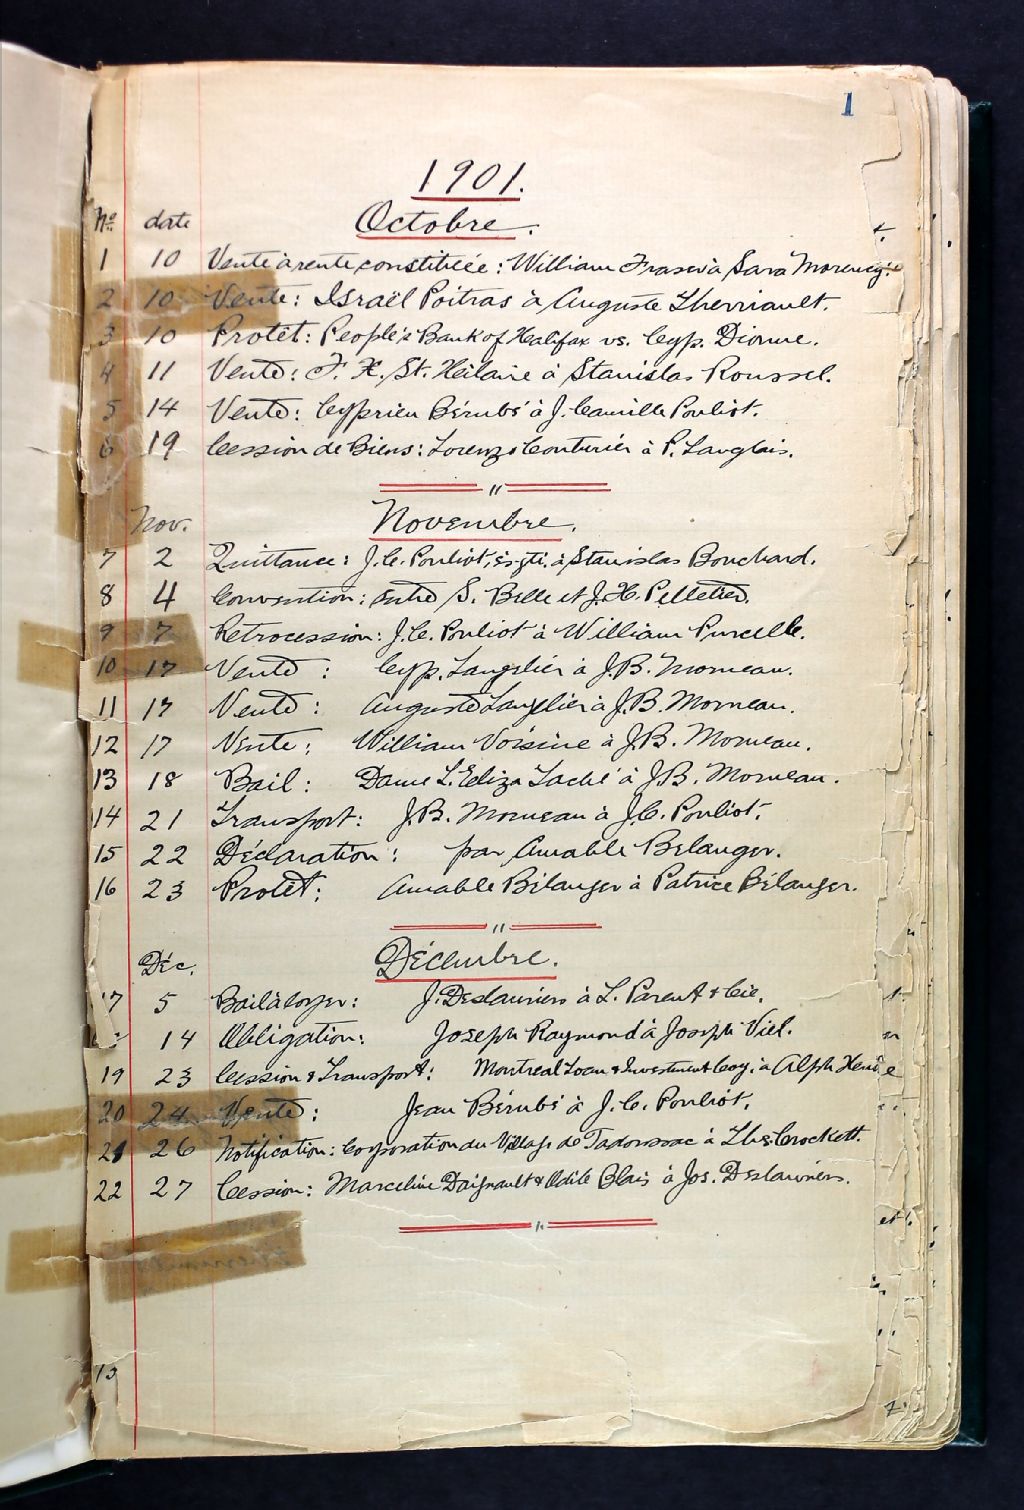 1
1901.
Octobre.
No date
1 10 Vente à rente constituée: William Fraser à Sara Morency.
2 10 Vente: Israël Poitras à Auguste Therriault.
3 10 Protêt: People's Bank of Halifax vs. Cyp. Dionne.
4 11 Vente: F. X. St. Hilaire à Stanislas Roussel.
5 14 Vente: Cyprien Bérubé à J. Camille Pouliot.
6 19 Cession de Biens: Lorenzo Couturier à P. Langlais.
Nov. Novembre.
7 2 Quittance: J. C. Pouliot, ès-qté. à Stanislas Bouchard.
8 4 Convention: entre S. Belle et J. H. Pelletier.
9 7 Rétrocession: J. C. Pouliot à William Purcelle.
10 17 Vente: Cyp. Langelier à J. B. Morneau.
11 17 Vente: Auguste Langelier à J. B. Morneau.
12 17 Vente: William Voisine à J. B. Morneau.
13 18 Bail: Dame L. Eliza à J. B. Morneau.
14 21 Transport: J. B. Morneau à J. C. Pouliot.
15 22 Déclaration: par Amable Belanger.
16 23 Protêt: Amable Bélanger à Patrice Bélanger.
Déc. Décembre.
17 5 Bail à loyer: J. Deslauriers à L. Parent & Cie.
14 Obligation: Joseph Raymond à Joseph Viel.
19 23 Cession & Transport: Montreal Loan & Investment Coy. à Alph
20 24 Vente: Jean Bérubé à J. C. Pouliot.
21 26 Notification: Corporation du Village de Tadoussac à Ths Crockett.
22 27 Cession: Marceline Daignault & Odile Blais à Jos. Deslauriers.
13